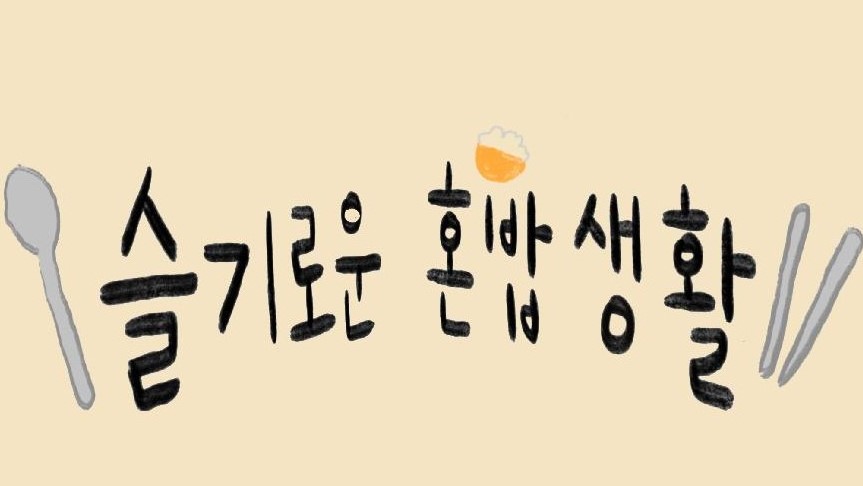 슬기로운 혼밥 생활